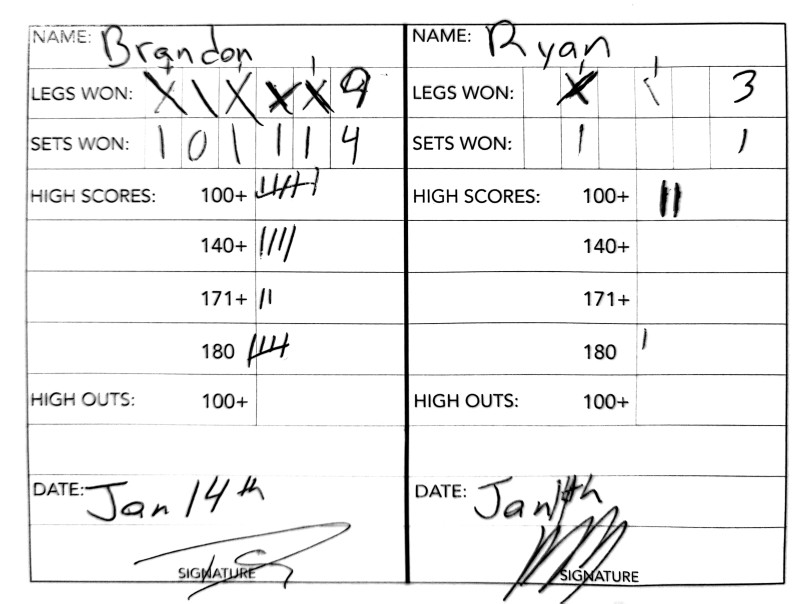 NAME: Brandon
LEGS WON: X \ X X X 9
SETS WON: 1 0 1 1 1 4
HIGH SCORES: 100+ 𝍸 |
140+ ||||
171+ ||
180 𝍸
HIGH OUTS: 100+
DATE: Jan 14th
SIGNATURE
NAME: Ryan
LEGS WON: X \ 3
SETS WON: 1 1
HIGH SCORES: 100+ ||
140+
171+
180 |
HIGH OUTS: 100+
DATE: Jan 14th
SIGNATURE